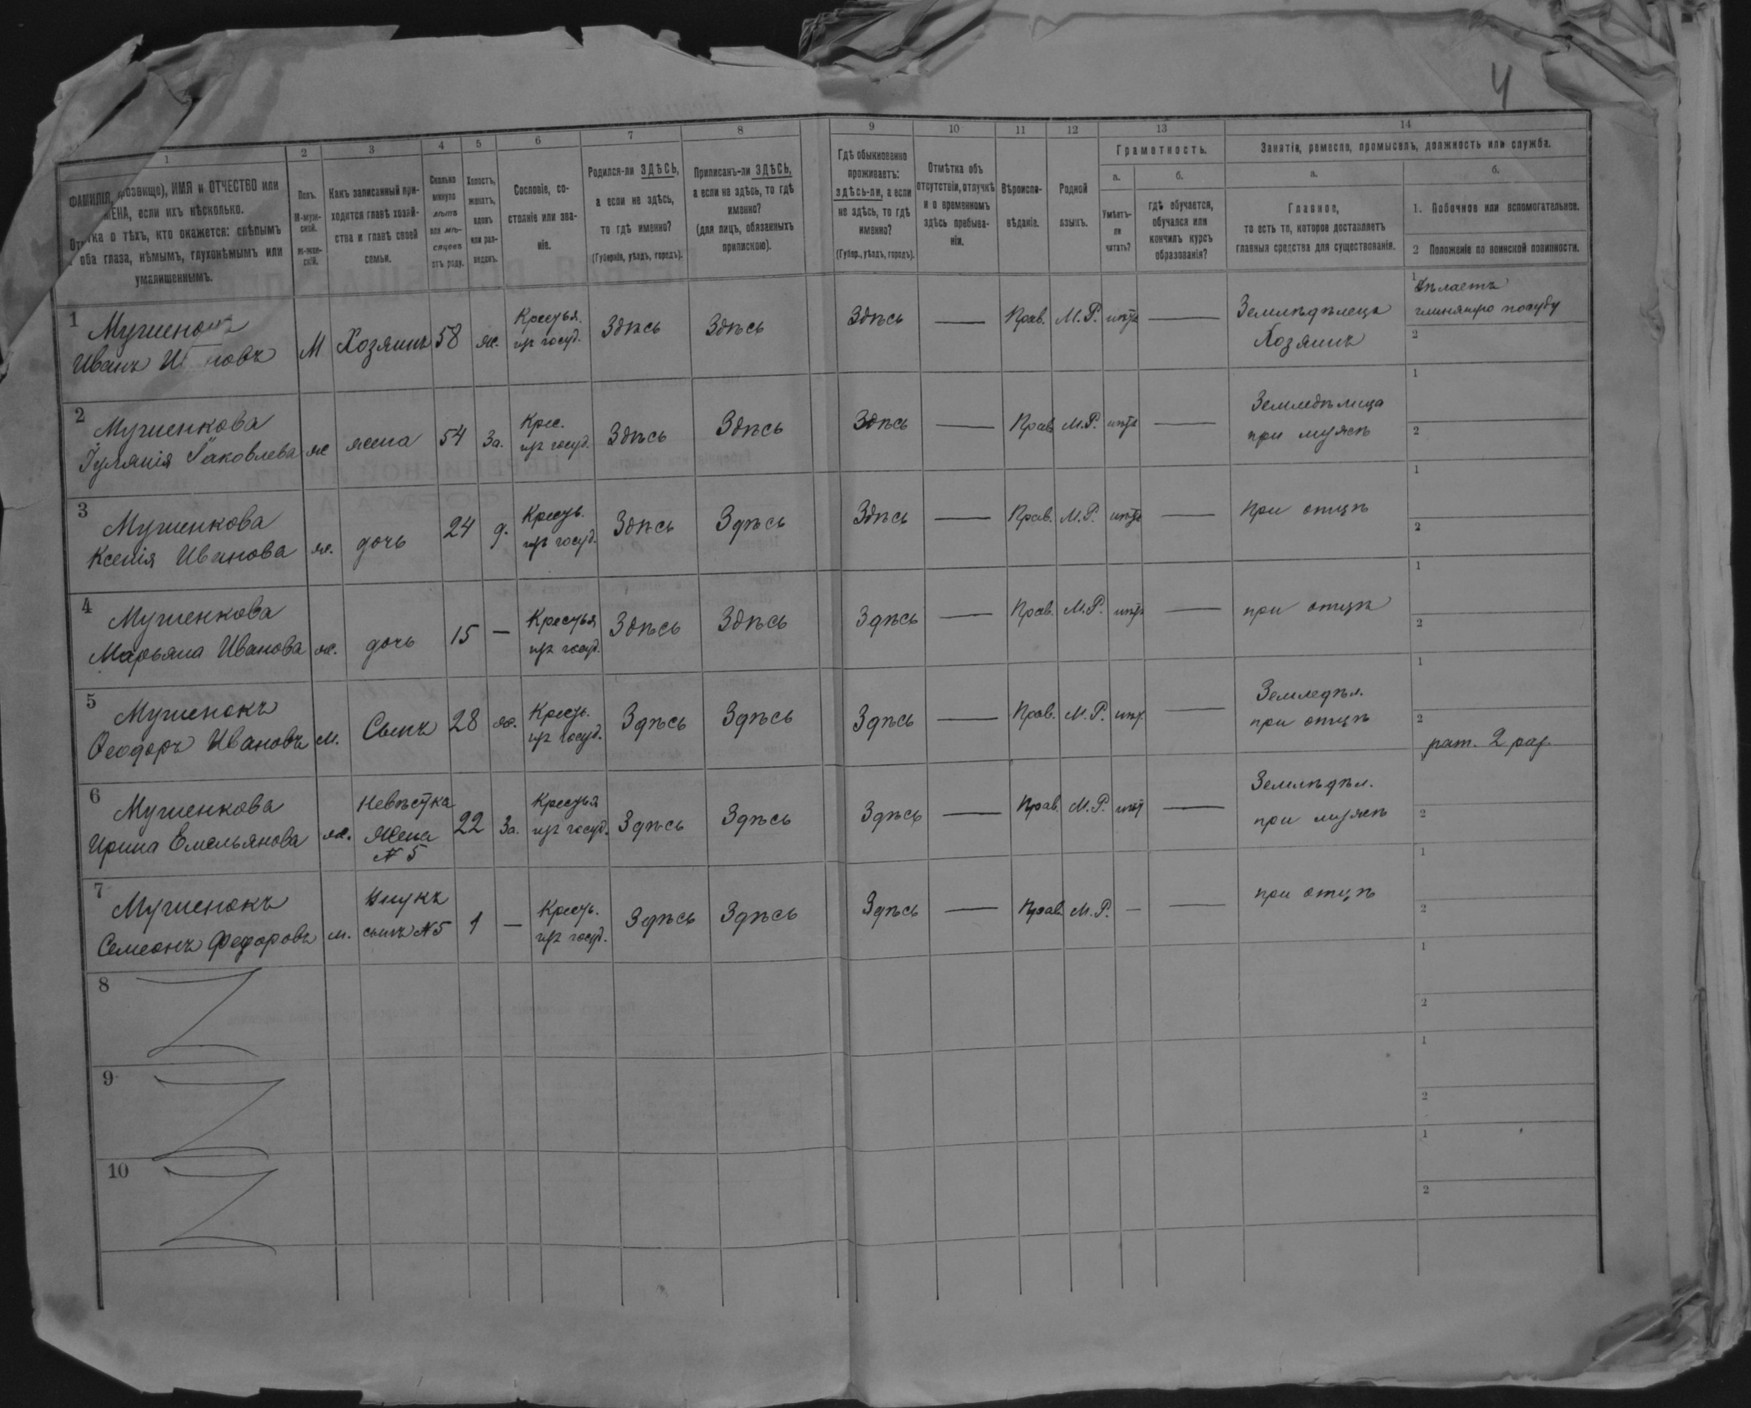 4
1 2 3 4 5 6 7 8 9 10 11 12 13 14
ФАМИЛІЯ, (прозвище), ИМЯ и ОТЧЕСТВО или
ИМЕНА, если ихъ нѣсколько.
Отмѣтка о тѣхъ, кто окажется: слѣпымъ
на оба глаза, нѣмымъ, глухонѣмымъ или
умалишеннымъ.
Полъ.
М-муж-
ской.
Ж-жен-
скій.
Какъ записанный при-
ходится главѣ хозяй-
ства и главѣ своей
семьи.
Сколько
минуло
лѣтъ
или мѣ-
сяцевъ
отъ роду.
Холостъ,
женатъ,
вдовъ
или раз-
веденъ.
Сословіе, со-
стояніе или зва-
ніе.
Родился-ли ЗДѢСЬ,
а если не здѣсь,
то гдѣ именно?
(Губернія, уѣздъ, городъ).
Приписанъ-ли ЗДѢСЬ,
а если не здѣсь, то гдѣ
именно?
(для лицъ, обязанныхъ
припискою).
Гдѣ обыкновенно
проживаетъ:
здѣсь-ли, а если
не здѣсь, то гдѣ
именно?
(Губер., уѣздъ, городъ).
Отмѣтка объ
отсутствіи, отлучкѣ
и о временномъ
здѣсь пребыва-
ніи.
Вѣроиспо-
вѣданіе.
Родной
языкъ.
Грамотность.
а.
Умѣетъ-
ли
читать?
б.
гдѣ обучается,
обучался или
кончилъ курсъ
образованія?
Занятіе, ремесло, промыселъ, должность или служба.
а.
Главное,
то есть то, которое доставляетъ
главныя средства для существованія.
б.
1. Побочное или вспомогательное.
2 Положеніе по воинской повинности.
1 Мушенокъ
Иванъ И новъ М Хозяинъ 58 ж. Крестья. изъ госуд. Здѣсь Здѣсь Здѣсь — Прав. М.Р. нѣтъ — Землѣдѣлецъ Хозяинъ
1 дѣлаетъ
глиняную посуду
2
2 Мушенкова
Іулянія Яковлева ж жена 54 За. Крес. изъ госуд. Здѣсь Здѣсь Здѣсь — Прав М.Р. нѣтъ — Земледѣлица при мужѣ
1
2
3 Мушенкова
Ксенія Иванова ж. дочь 24 д. Кресть. изъ госуд. Здѣсь Здѣсь Здѣсь — Прав. М.Р. нѣтъ — При отцѣ
1
2
4 Мушенкова
Марьяна Иванова ж. дочь 15 — Крестья изъ госуд. Здѣсь Здѣсь Здѣсь — Прав. М.Р. нѣтъ — при отцѣ
1
2
5 Мушенокъ
Ѳеодоръ Ивановъ м. Сынъ 28 ж. Кресть. изъ госуд. Здѣсь Здѣсь Здѣсь — Прав. М.Р. нѣт. — Земледѣл. при отцѣ
1
2
рат. 2 раз.
6 Мушенкова
Ирина Емельянова ж. Невѣстка Жена № 5 22 За. Крестья изъ госуд. Здѣсь Здѣсь Здѣсь — Прав. М.Р. нѣт — Землѣдѣл. при мужѣ
2
7 Мушенокъ
Семеонъ Федоровъ м. Внукъ сынъ №5 1 — Кресть. изъ госуд. Здѣсь Здѣсь Здѣсь — Прав М.Р. — — при отцѣ
1
2
8
1
2
9
1
2
10
1
2